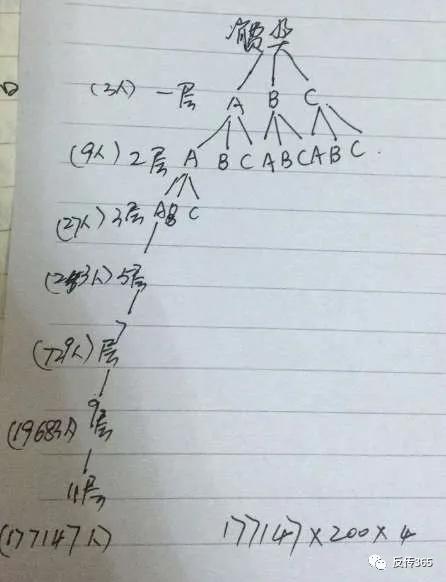 类
(3人) 一层 A B C
(9人) 2层 A B C A B C A B C
(27人) 3层 A B C
(243人) 5层
7
(729人) 层
9
(19683人) 层
11层
(177147人) 177147×200×4
反传365